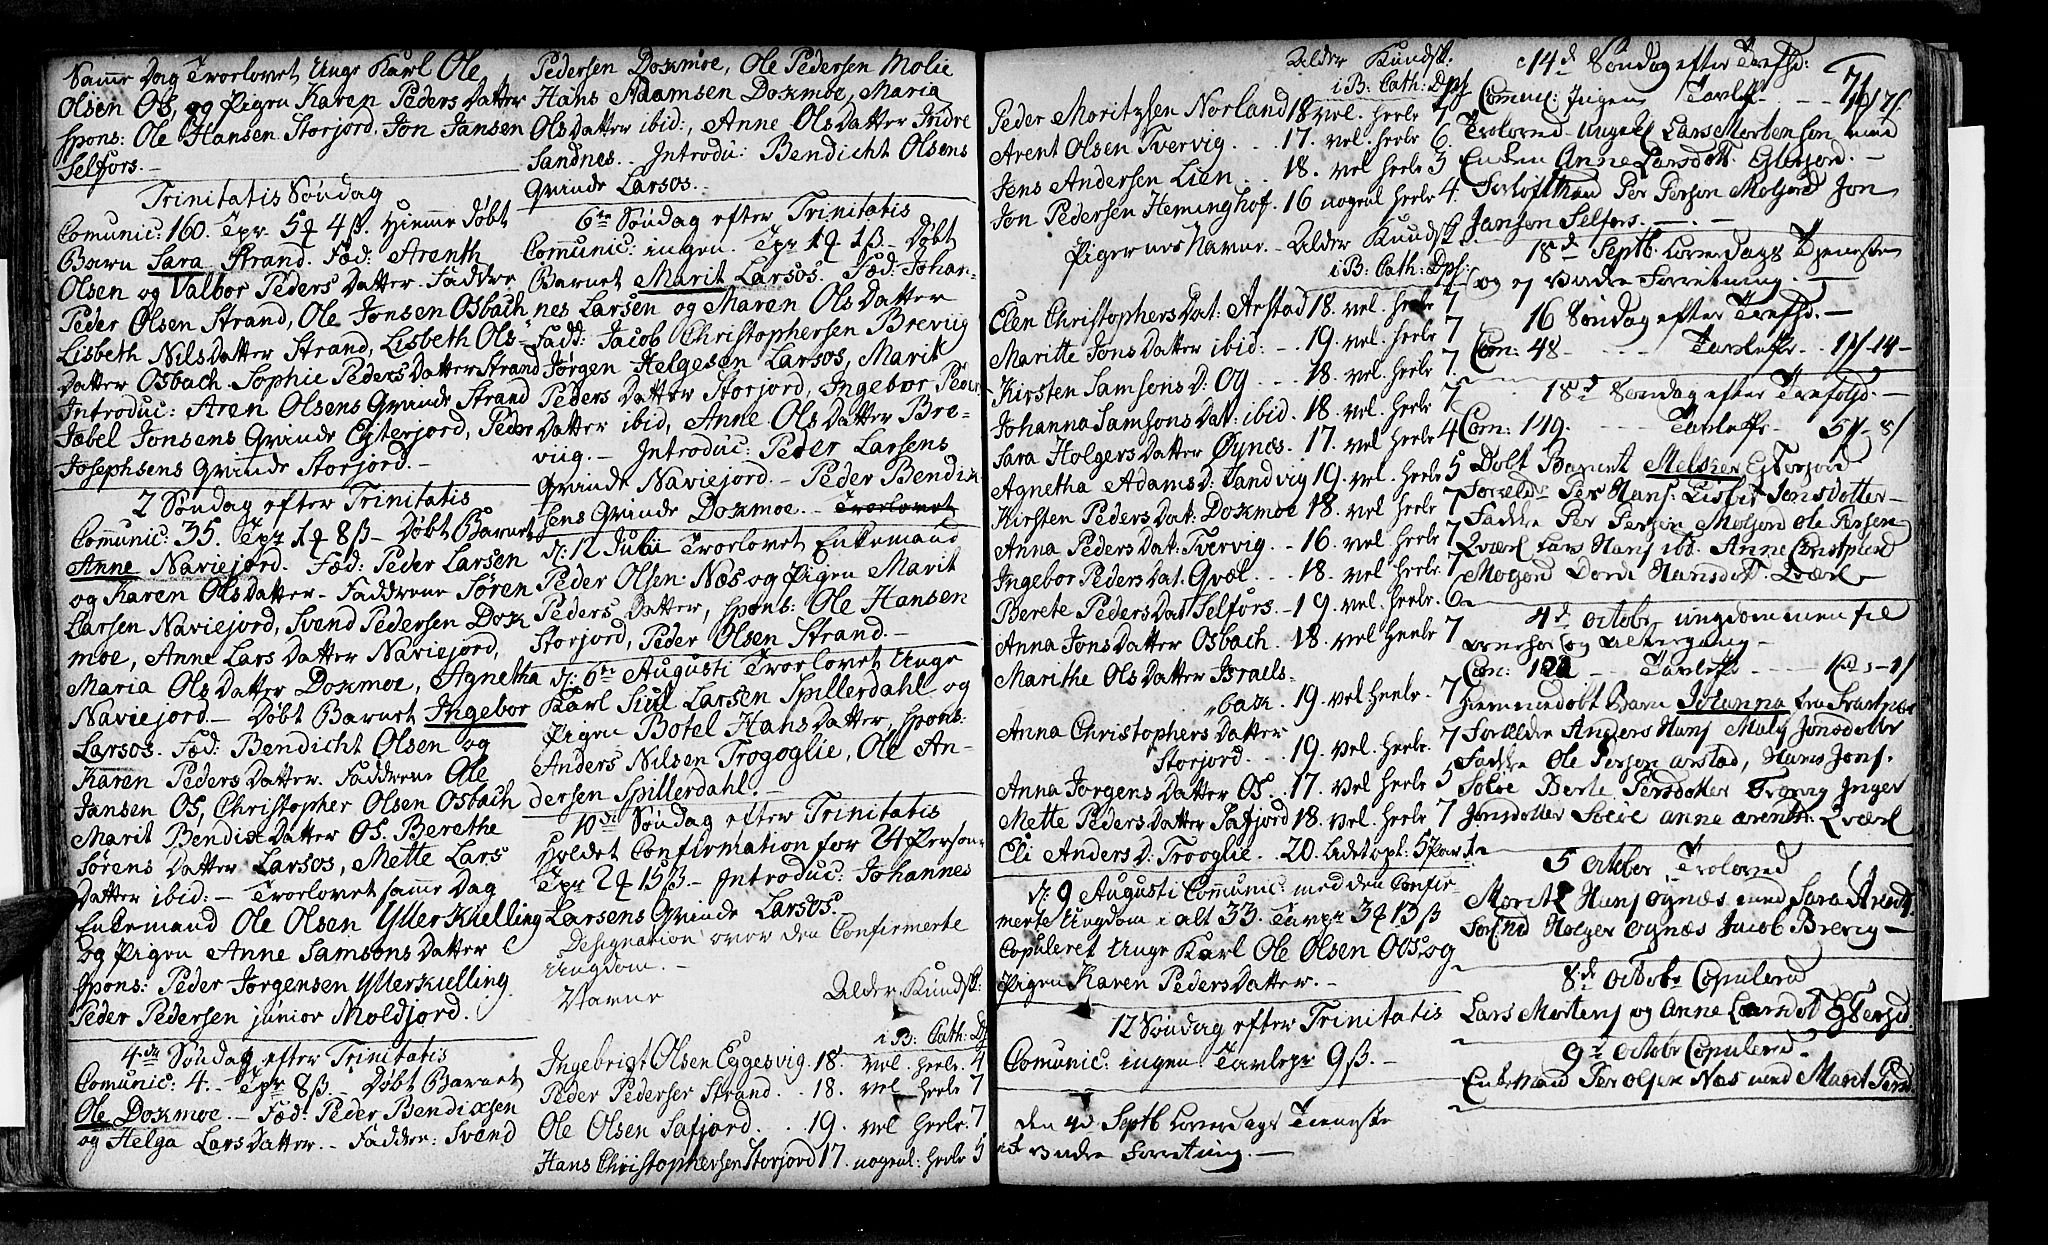 Samme Dag Troelovet Unge Karl Ole
Olsen Os, og Pigen Karen Peders Datter
spons: Ole Hansen Storjord, Jon Jansen
Selfors. –
Trinitatis Søndag
Comunic: 160. Tpr. 5 4 ß. Hiemme Døbt
Barn Sara Strand. Fød: Arenth
Olsen og Valbor Peders Datter. Faddre
Peder Olsen Strand, Ole Jonsen Osbach
Lisbeth Nils Datter Strand, Lisbeth Ols-
Datter Osbach. Sophie Peders Datter Strand
Introduc: Aren Olsens Qvinde Strand
Jabel Jonsens Qvinde Eyterjord, Peder
Josephsens Qvinde Storjord. –
2 Søndag efter Trinitatis
Comunic: 35. Tpr 1 8 ß – Døbt Barnet
Anne Naviejord. Fød: Peder Larsen
og Karen Ols Datter – Faddrene Søren
Larsen Naviejord, Svend Pedersen Dox
moe, Anne Lars Datter Naviejord,
Maria Ols Datter Doxmoe, Agnetha
Naviejord – Døbt Barnet Ingebor
Larsos. Fød: Bendicht Olsen og
Karen Peders Datter. Faddrene Ole
Jansen Os, Christopher Olsen Osbach
Marit Bendix Datter Os. Berethe
Sørens Datter Larsos, Mette Lars
Datter ibid: – Troelovet samme Dag
Enkemand Ole Olsen Ytterkielling
og Pigen Anne Samsons Datter
spons: Peder Jørgensen Ytterkielling
Peder Pedersen junior Moldjord.
4de Søndag efter Trinitatis
Comunic: 4. – Tpr 8 ß – Døbt Barnet
Ole Doxmoe. – Fød: Peder Bendixsen
og Helga Lars Datter. – Faddre: Svend
Pedersen Doxmoe, Ole Pedersen Molie
Hans Adamsen Doxmoe, Maria
Ols Datter ibid:, Anne Ols Datter Indre
Sandnes. – Introdu: Bendicht Olsens
Qvinde Larsos. –
6te Søndag efter Trinitatis
Communic: ingen. Tpr 1 1 ß – Døbt
Barnet Marit Larsos. Fød: Johan-
nes Larsen og Maren Ols Datter
Fadd: Jacob Christophersen Breviig
Jørgen Helgesen Larsos, Marit
Peders Datter Storjord, Ingebor Peder
Datter ibid, Anne Ols Datter Bre-
viig. – Introduc: Peder Larsens
Qvinde Naviejord. – Peder Bendix
sens Qvinde Doxmoe. – Troelovet
d: 12 Julii Troelovet Enkemand
Peder Olsen Næs og Pigen Marit
Peders Datter, spons: Ole Hansen
Storjord, Peder Olsen Strand. –
d: 6te Augusti Troelovet Unge
Karl Siul Larsen Spillerdahl og
Pigen Botel Hans Datter, spons:
Anders Nilsen Trogoglie, Ole An-
dersen Spillerdahl. –
10de Søndag efter Trinitatis
Holdet Confirmation for 24 Person
Tpr 2 15 ß – Introduc: Johannes
Larsens Qvinde Larsos.
Designation over den Confirmerte
Ungdom. –
Navne Alder Kundsk:
i B: Cath:
Ingebrigt Olsen Eggesvig. 18. vel. heele. 4
Peder Pedersen Strand. . 18. vel heele 7
Ole Olsen Safjord. . . 19. vel heele. 7
Hans Christophersen Storjord 17. nogenl: heele 5
Alder Kundsk:
i B: Cath: Dpf
Peder Moritzsen Norland 18 vel. heele 7
Arent Olsen Tvervig. . . 17. vel. heele 6.
Jens Andersen Lien. . . 18. vel heele 3
Jon Pedersen Heminghof. 16 nogenl heele 4.
Pigernes Navne. – Alder Kundsk:
i B: Cath: Dpf:
Elen Christophers Dat: Arstad 18. vel. heele 7
Maritte Jons Datter ibid: – . 19. vel. heele 7
Kirsten Samsons D. Og . . . 18. vel. heele 7
Johanna Samsons Dat: ibid. 18. vel. heele 7
Sara Holgers Datter Øynæs. 17. vel. heele 4
Agnetha Adams D: Sandvig 19. vel. heele 5
Kirsten Peders Dat: Doxmoe 18. vel heele 7
Anna Peders Dat: Tvervig. . . 16. vel heele 7
Ingebor Peders Dat. Qvæl. . . 18. vel heele. 7
Berete Peders Dat Selfors. – 19. vel. heele. 6
Anna Jons Datter Osbach. 18. vel heele 7
Marithe Ols Datter Israels-
bak. 19. vel. heele. 7
Anna Christophers Datter
Storjord. . . 19. vel. heele. 7
Anna Jørgens Datter Os. . 17. vel heele 5
Mette Peders Datter Safjord 18. vel. heele 7
Eli Anders D: Trooglie. . 20. Ladet opl: 5 Part 1
d: 9 Augusti Comunic: med den Confir-
merte Ungdom i alt 33. Tavpr 3 13 ß
Copuleret Unge Karl Ole Olsen Os og
Pigen Karen Peders Datter. –
12 Søndag efter Trinitatis
Comunic: ingen Tavlepr 9 ß. –
Den 4d Septb Løverdags Tieneste
ej videre Forretning. –
14d Søndag efter Trefhd:
Comuc: Ingen Tavlep – – –
Troloved Ungekl Lars Mortenson med
Enken Anne Larsdott. Eyterjord. –
Forlofsmænd Per Person Moljord Jon
Janson Selfors. –
18d Septb Løverdags Tieneste
og ej videre Forretning –
16 Søndag efter Trefhd. –
Com: 48 – – – Tavleps. –
18d Søndag efter Trefold. –
Com: 149. – – – Tavleps –
Døbt Barnet Melsker Eyterjord
Forældr Per Hans: Lisbet Jonsdotter –
Faddre Per Person Moljord Ole Persen
Qværl Lars Hans ibd. Anne Christpherd
Moljord Dorde Hansdott. Qværl –
4d October, ungdommen til
og altergang –
Com: 102 – – Tavleps – –
Hiemmedøbt Barn Johanna
Forældre Anders Hans Maly Jonsdotter
Faddre Ole Person Arstad, Hans Jons.
Soløe Berte Persdotter Tvervig Inger
Jonsdotter Soløe Anne Arentd. Qværl
5 October, Troloved
Morits Hans Øynæs med Sara Arentd
Forlmd Holger Øynæs Jacob Brevig –
8d Octobr Copulered
Lars Mortens og Anne Larsdot Eyterjd.
9d Octobr Copulered.
Enkemand Per Olsen Næs med Marit Persd